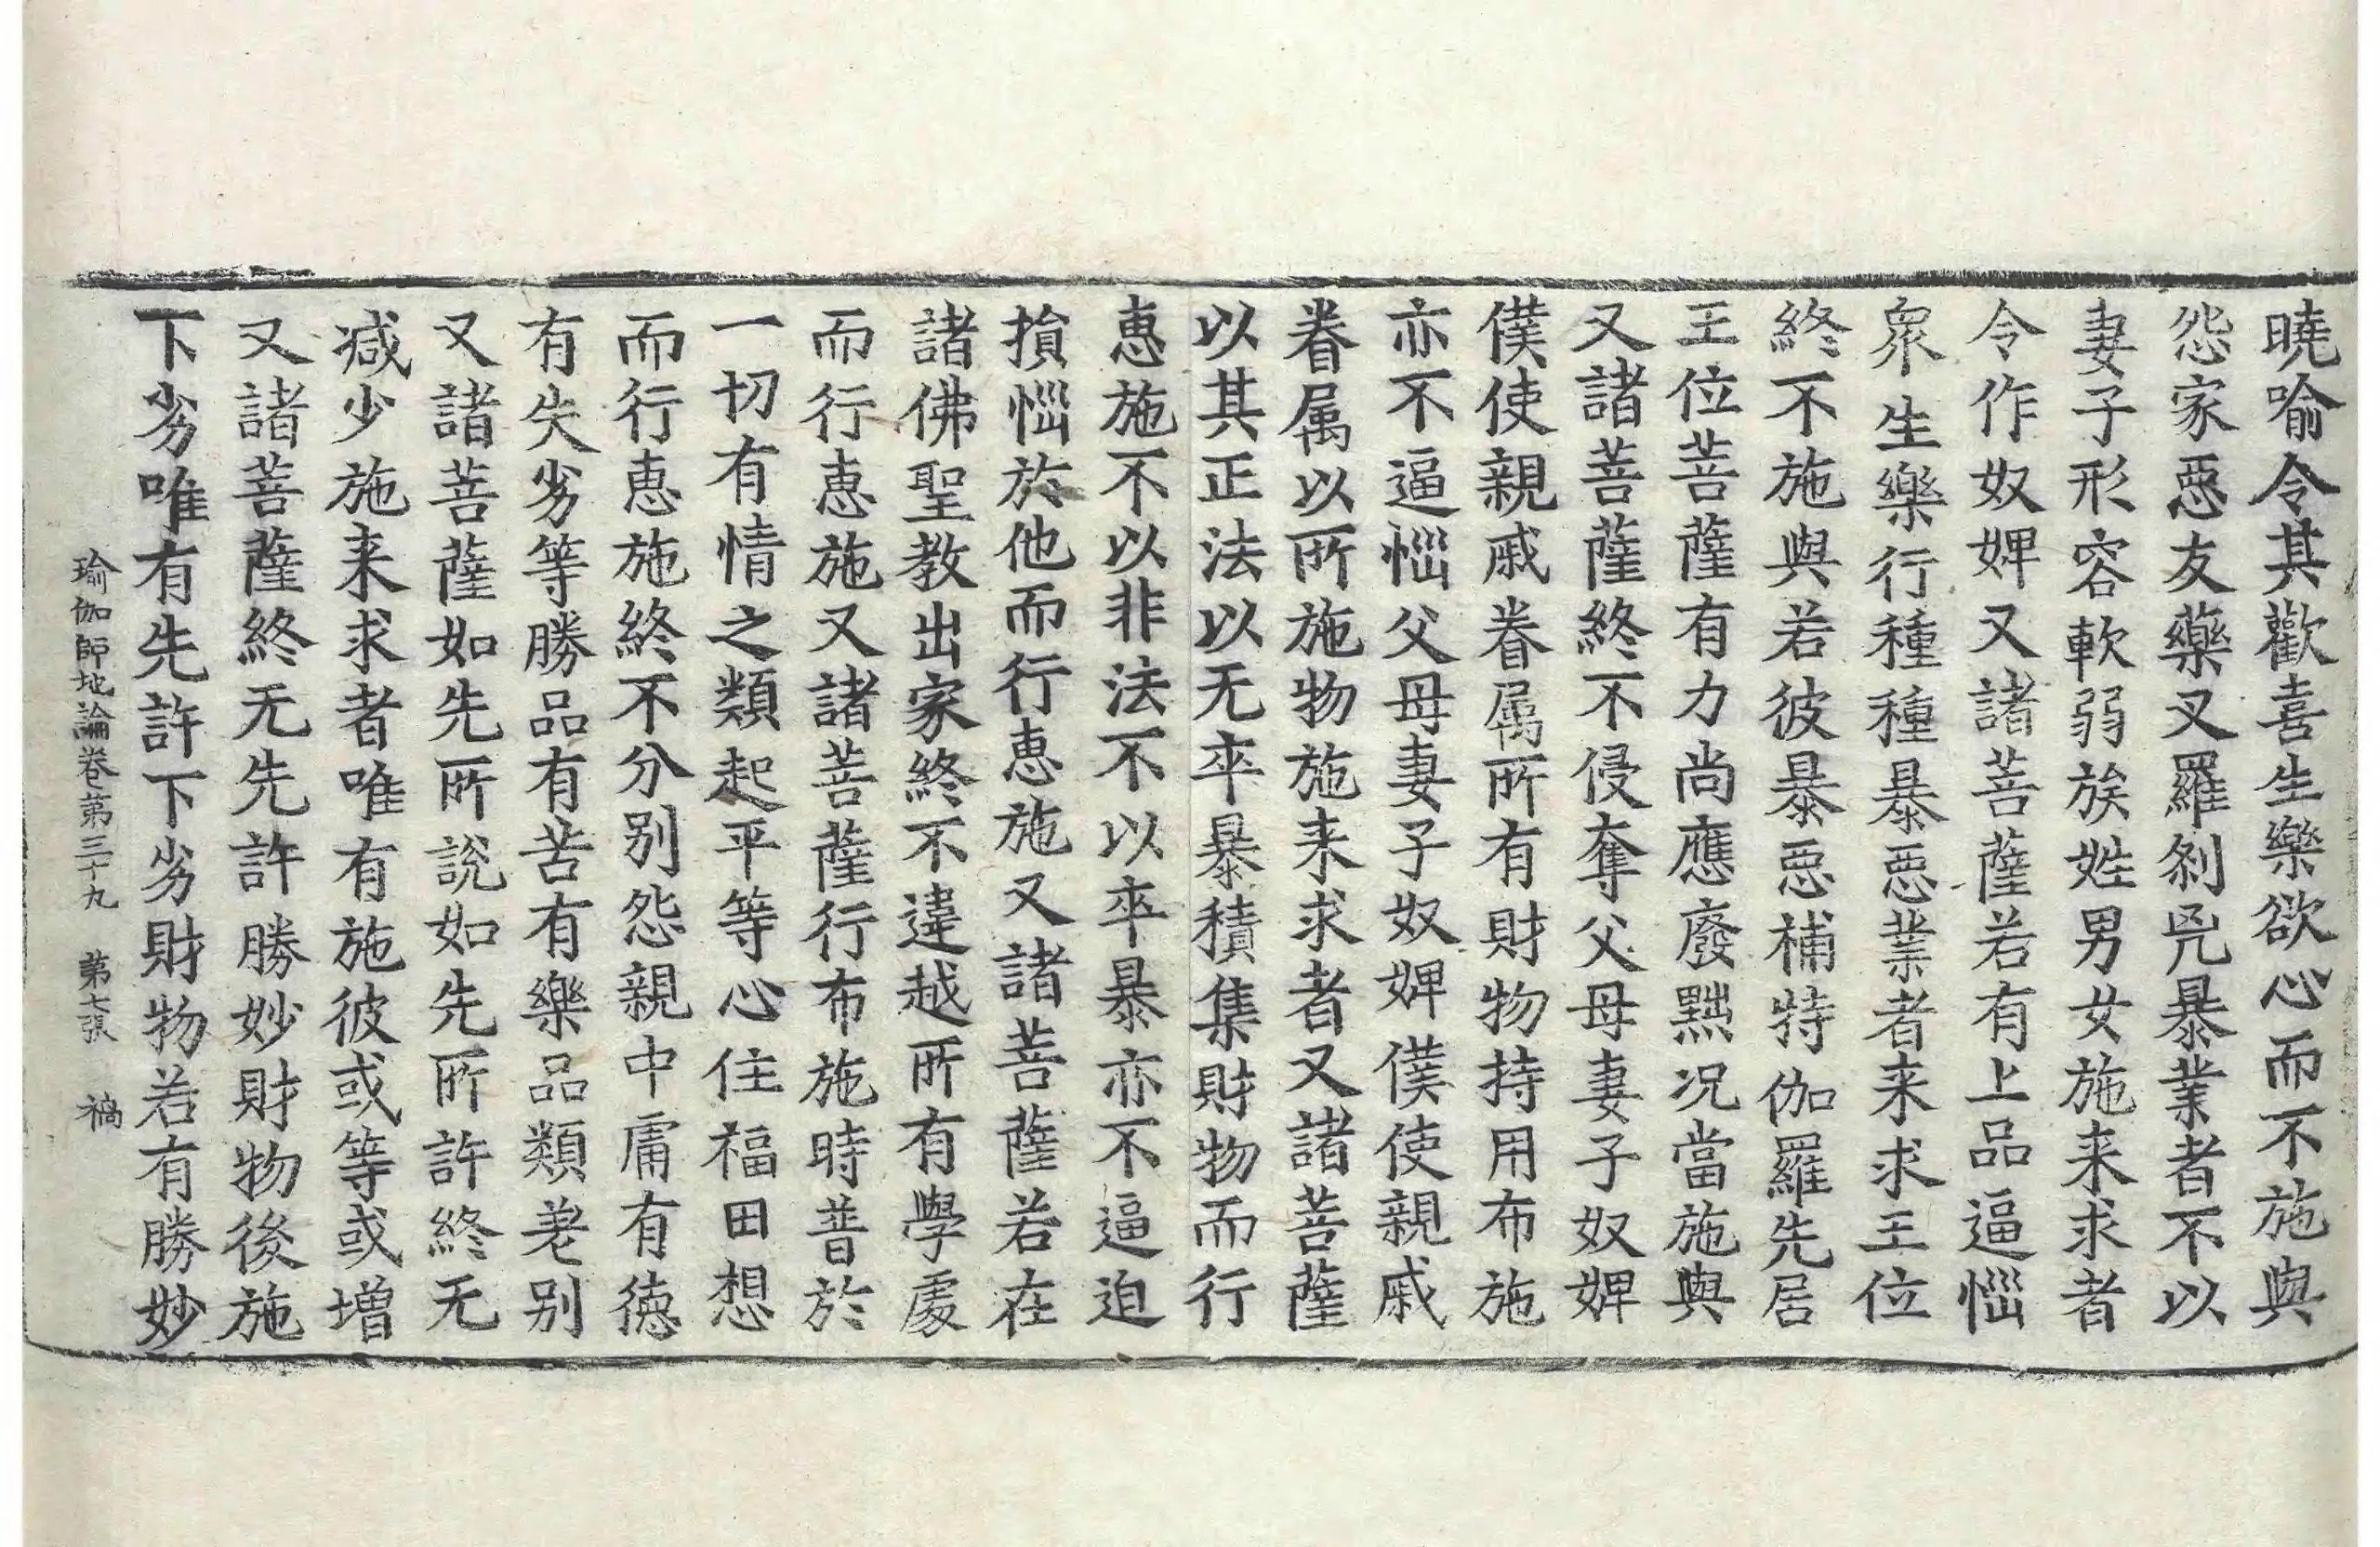 曉喻令其歡喜生樂欲心而不施與
怨家惡友藥叉羅刹兇暴業者不以
妻子形容軟弱族姓男女施来求者
令作奴婢又諸菩薩若有上品逼惱
衆生樂行種種暴惡業者来求王位
終不施與若彼暴惡補特伽羅先居
王位菩薩有力尚應廢黜况當施與
又諸菩薩終不侵奪父母妻子奴婢
僕使親戚眷属所有財物持用布施
亦不逼惱父母妻子奴婢僕使親戚
眷属以所施物施来求者又諸菩薩
以其正法以无卒暴積集財物而行
惠施不以非法不以卒暴亦不逼迫
損惱於他而行惠施又諸菩薩若在
諸佛聖教出家終不違越所有學處
而行惠施又諸菩薩行布施時普於
一切有情之類起平等心住福田想
而行惠施終不分别怨親中庸有德
有失劣等勝品有苦有樂品類差别
又諸菩薩如先所說如先所許終无
减少施来求者唯有施彼或等或增
又諸菩薩終无先許勝妙財物後施
下劣唯有先許下劣財物若有勝妙
瑜伽師地論卷第三十九 第七張 禍